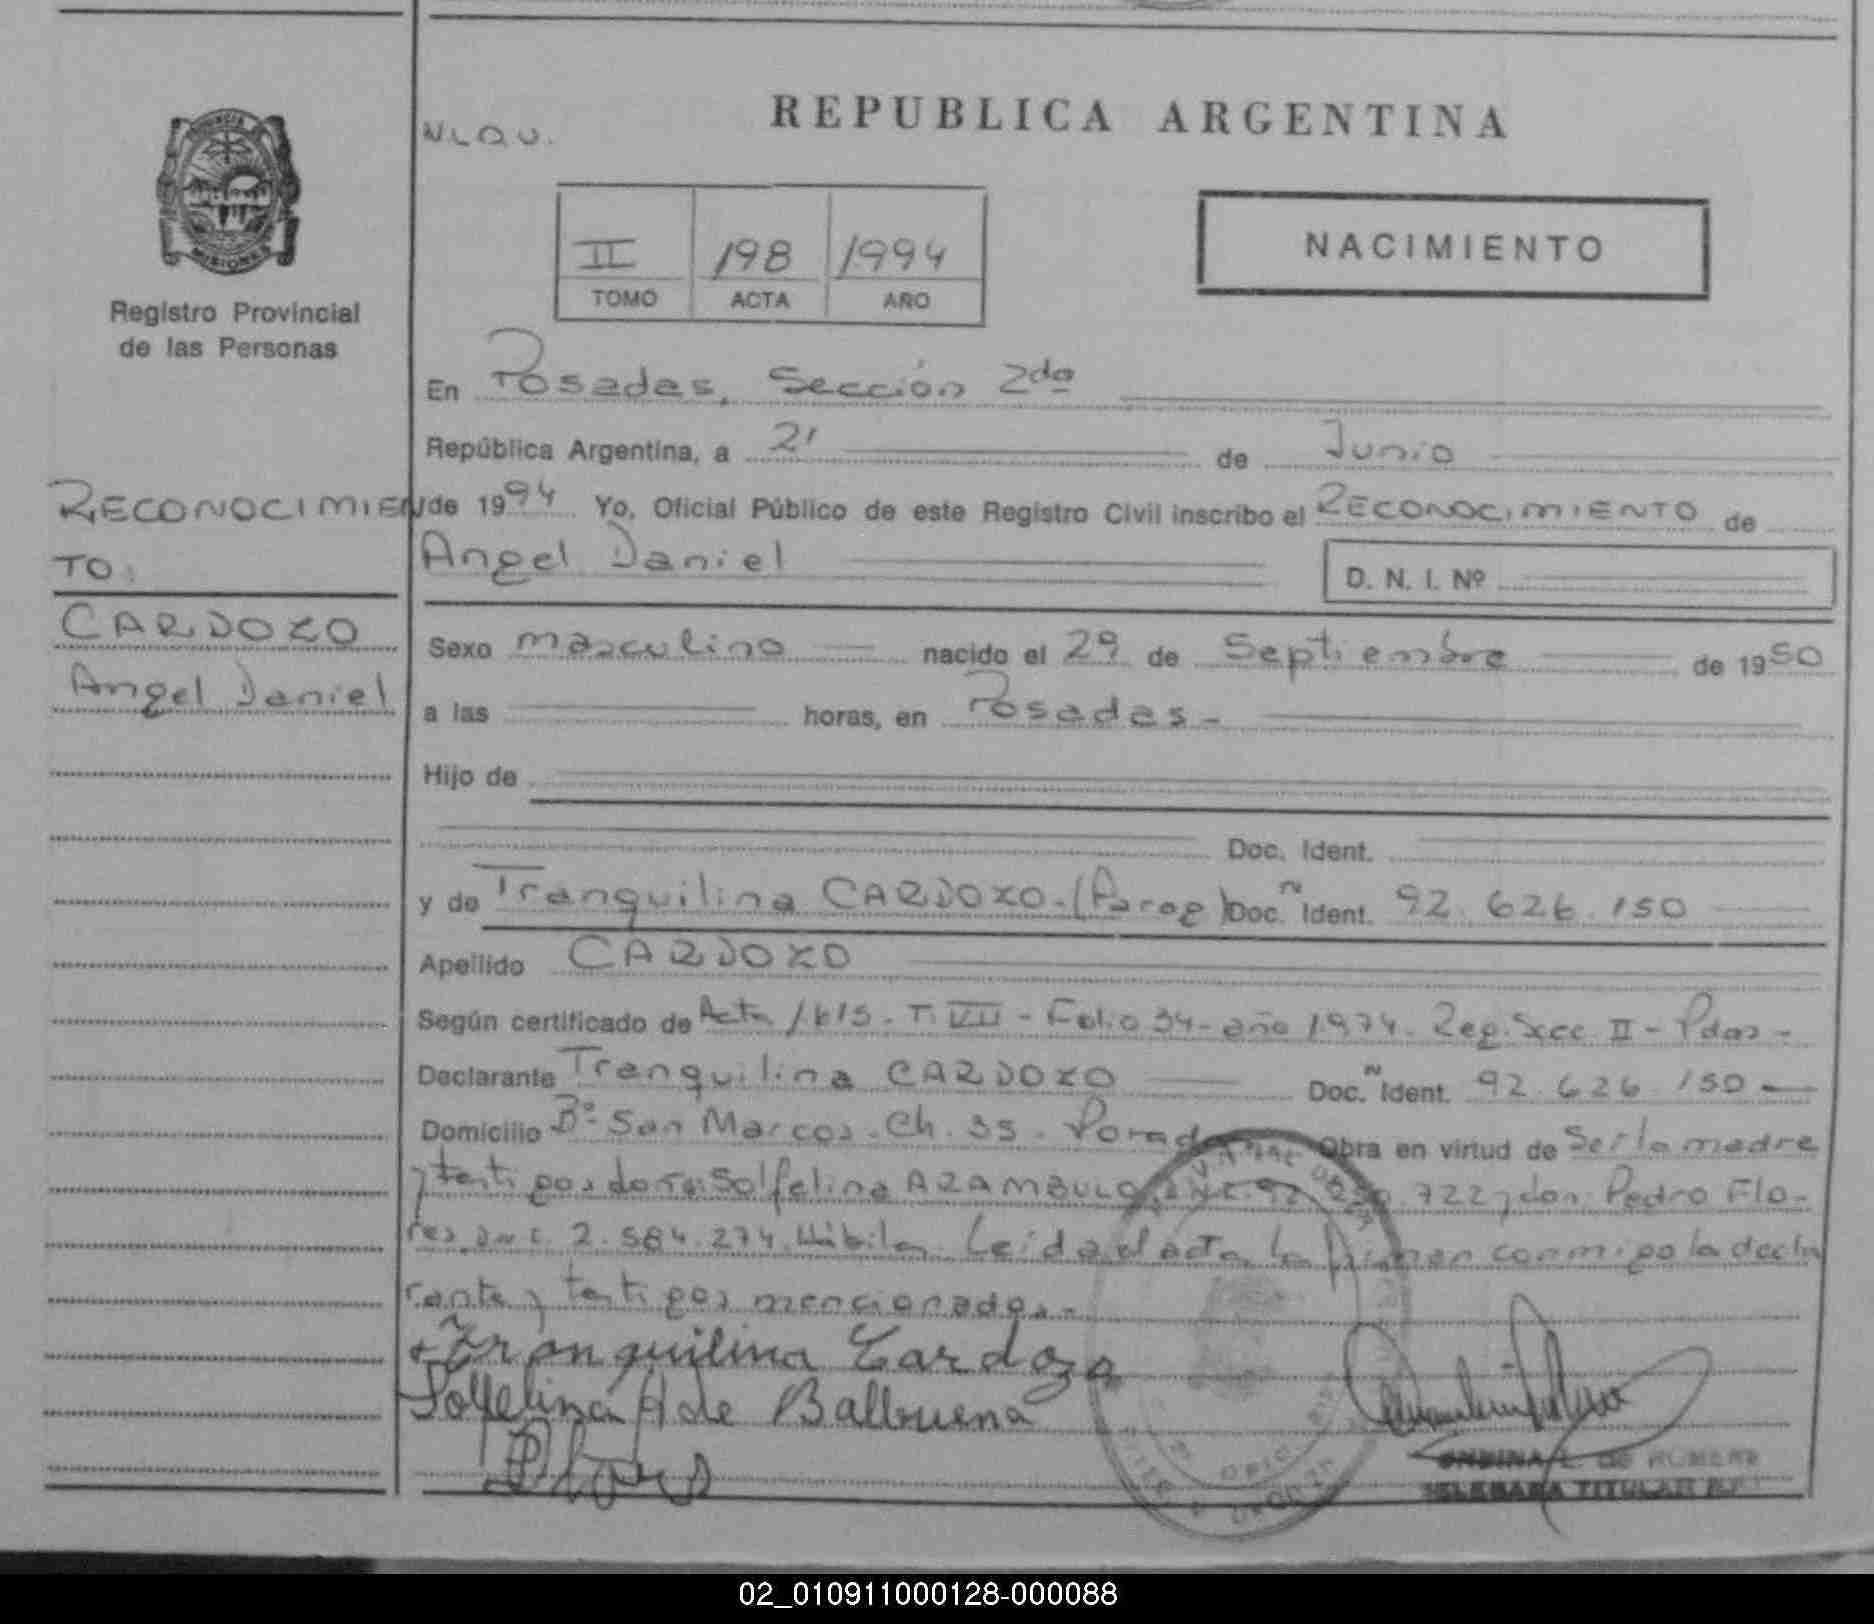 REPUBLICA ARGENTINA
N.L.Q.V.
NACIMIENTO
II 198 1994
TOMO ACTA AÑO
PROVINCIA DE
MISIONES
Registro Provincial
de las Personas
RECONOCIMIEN
TO:
CARDOZO
Angel Daniel
En Posadas, Sección 2da
República Argentina, a 21 de Junio
de 1994 Yo, Oficial Público de este Registro Civil inscribo el RECONOCIMIENTO de
Angel Daniel D. N. I. Nº
Sexo masculino nacido el 29 de Septiembre de 1950
a las horas, en Posadas-
Hijo de
Doc. Ident.
y de Tranquilina CARDOZO-(Parag) Doc. Ident. Nº 92.626.150
Apellido CARDOZO
Según certificado de Acta 1615- T. VII - Folio 34- año 1974- Reg. Secc. II - Pdas-
Declarante Tranquilina CARDOZO Doc. Ident. Nº 92.626.150
Domicilio Bº San Marcos. Ch. 35- Posadas Obra en virtud de Ser la madre
y testigos doña: Solfelina AZAMBULO 92. .722 y don: Pedro Flo-
res 2.584.274. Hábiles. Leída el acta la firman conmigo la decla
rante y testigos mencionados.-
Tranquilina Cardozo
Solfelina A de Balbuena
P Flores
DE ROMERO
DELEGADA TITULAR R.P.
02_010911000128-000088